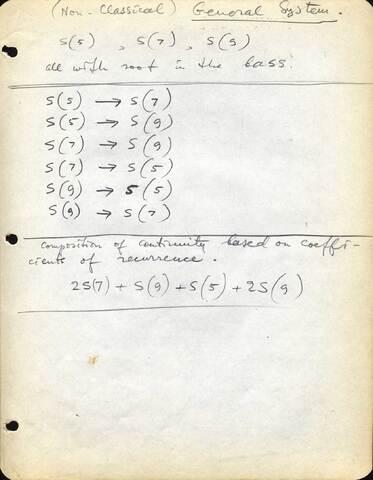 (Non-Classical) General System.
S(5) , S(7) , S(9)
all with root in the bass.
S(5) → S(7)
S(5) → S(9)
S(7) → S(9)
S(7) → S(5)
S(9) → S(5)
S(9) → S(7)
composition of continuity based on coeffi-
cients of recurrence.
2S(7) + S(9) + S(5) + 2S(9)